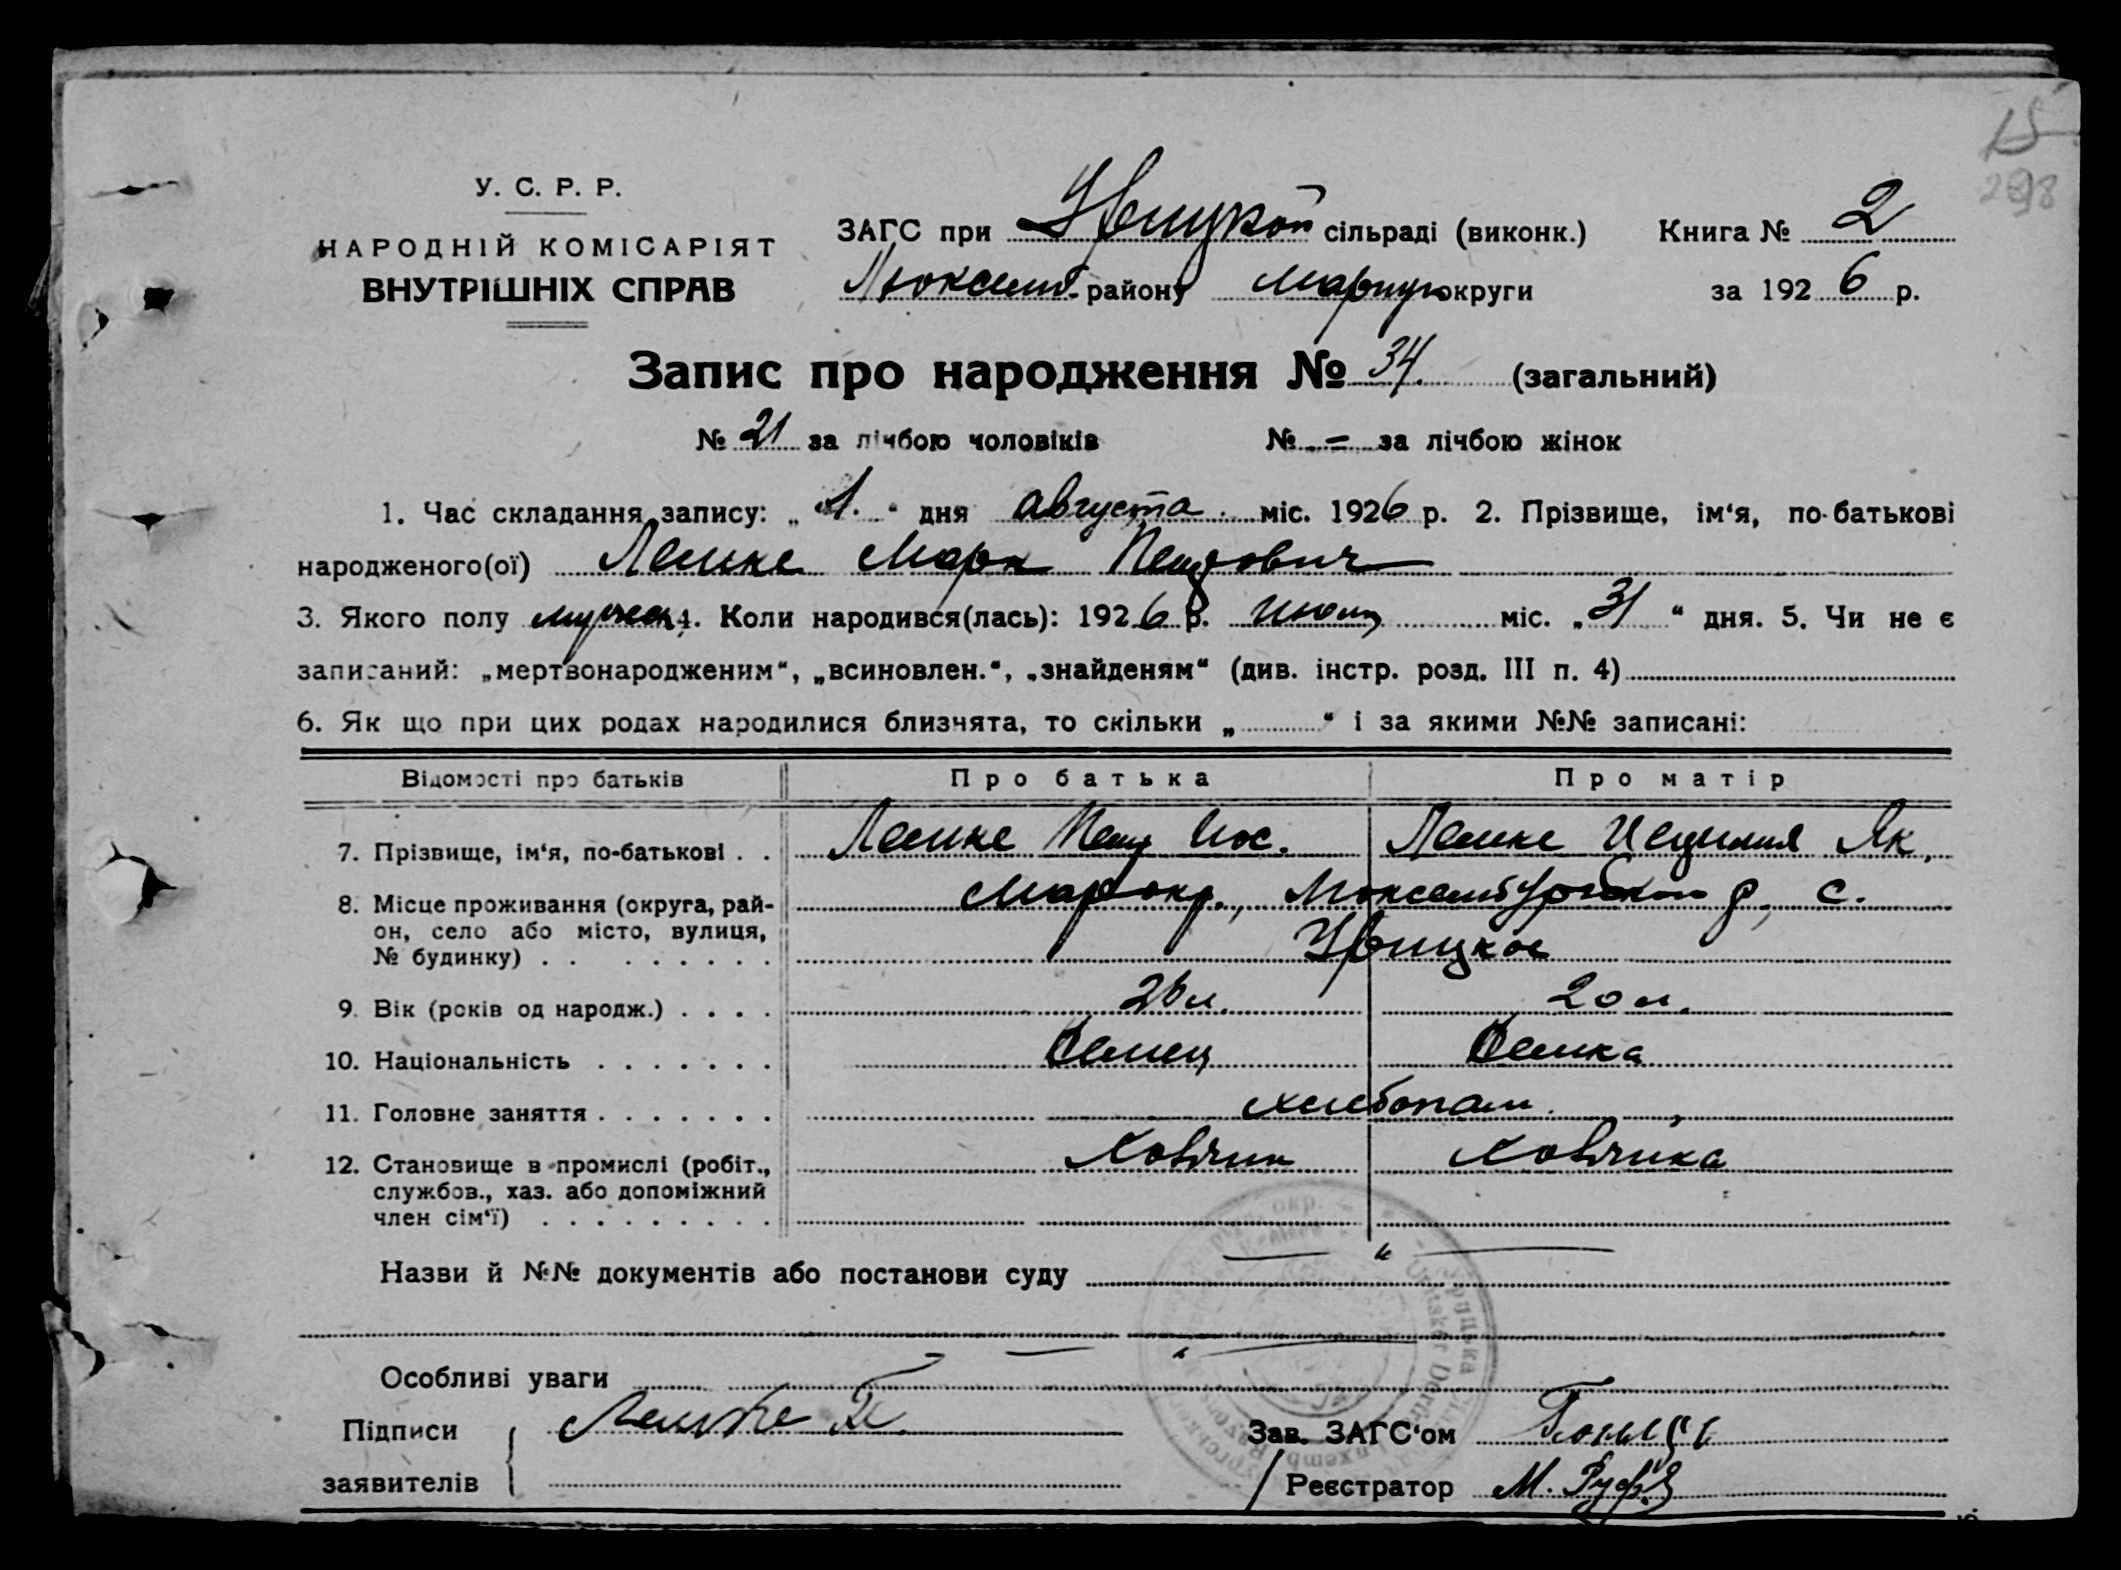 15
298
У. С. Р. Р.
НАРОДНІЙ КОМІСАРІЯТ
ВНУТРІШНІХ СПРАВ
ЗАГС при Урицкой сільраді (виконк.) Книга № 2
Люксемб. району Мариуп округи за 1926 р.
Запис про народження № 34. (загальний)
№ 21 за лічбою чоловіків № - за лічбою жінок
1. Час складання запису: „1.“ дня августа міс. 1926 р. 2. Прізвище, ім‘я, по-батькові
народженого(ої) Лемке Марк Петрович
3. Якого полу мужск 4. Коли народився(лась): 1926 р. июля міс. „31“ дня. 5. Чи не є
записаний: „мертвонародженим“, „всиновлен.“, „знайденям“ (див. інстр. розд. III п. 4)
6. Як що при цих родах народилися близнята, то скільки „ “ і за якими №№ записані:
Відомості про батьків Про батька Про матір
7. Прізвище, ім‘я, по-батькові . . Лемке Петр Иос. Лемке Цецилия Як.
8. Місце проживання (округа, рай- Мар. окр., Люксембургский р., с.
он, село або місто, вулиця, Урицкое
№ будинку)
9. Вік (років од народж.) . . . . 26 л. 20 л.
10. Національність . . . . . . . Немец Немка
11. Головне заняття . . . . . . . хлебопаш.
12. Становище в промислі (робіт., Хозяин Хозяйка
службов., хаз. або допоміжний
член сім‘ї) . . . . . . . . .
Назви й №№ документів або постанови суду
Особливі уваги
Підписи Лемке П.
заявителів
Зав. ЗАГС‘ом
Реєстратор М.